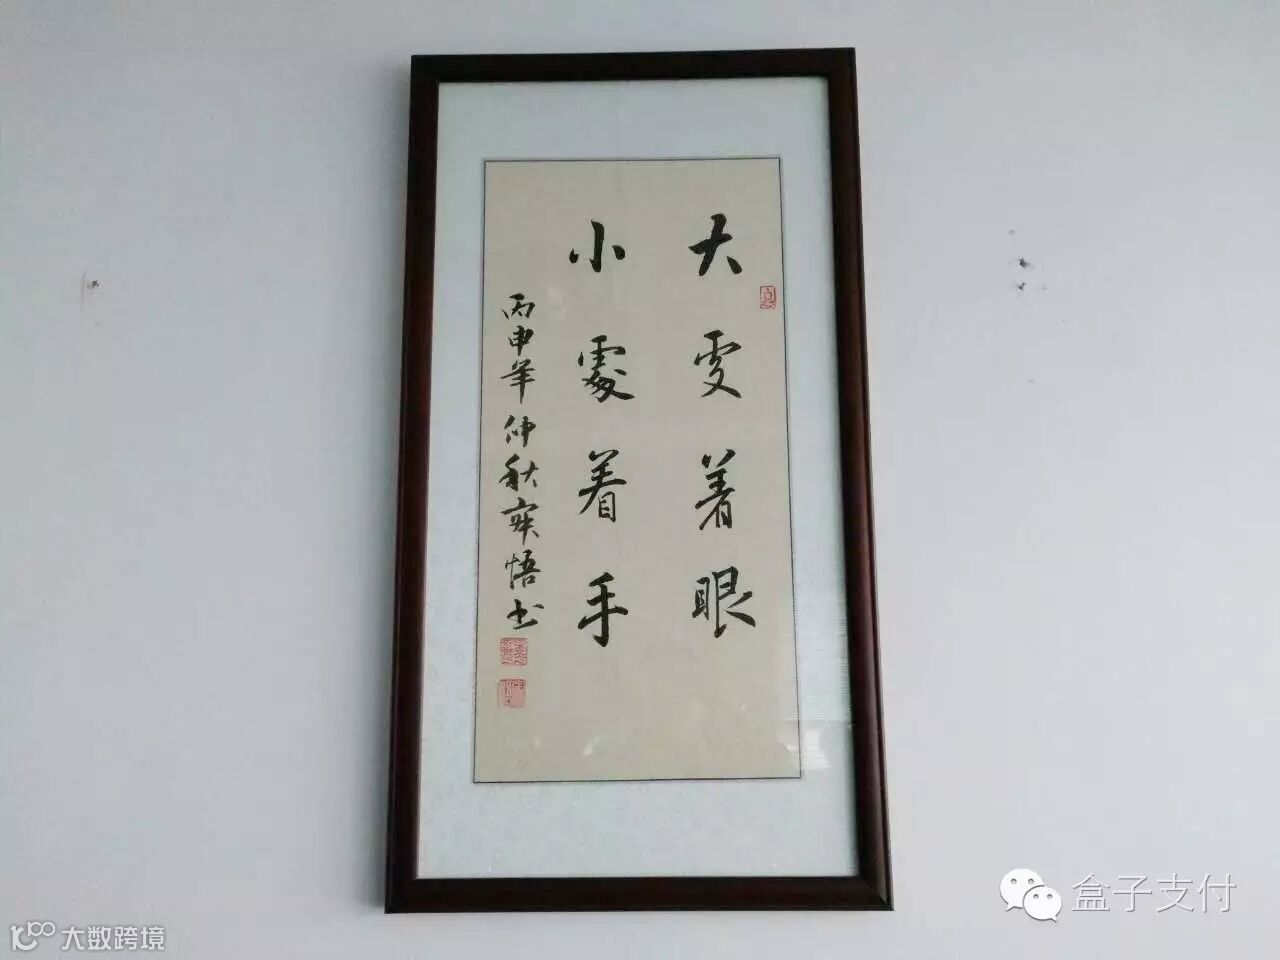 大處着眼
小處着手
丙申年仲秋寐悟书
盒子支付
大数跨境